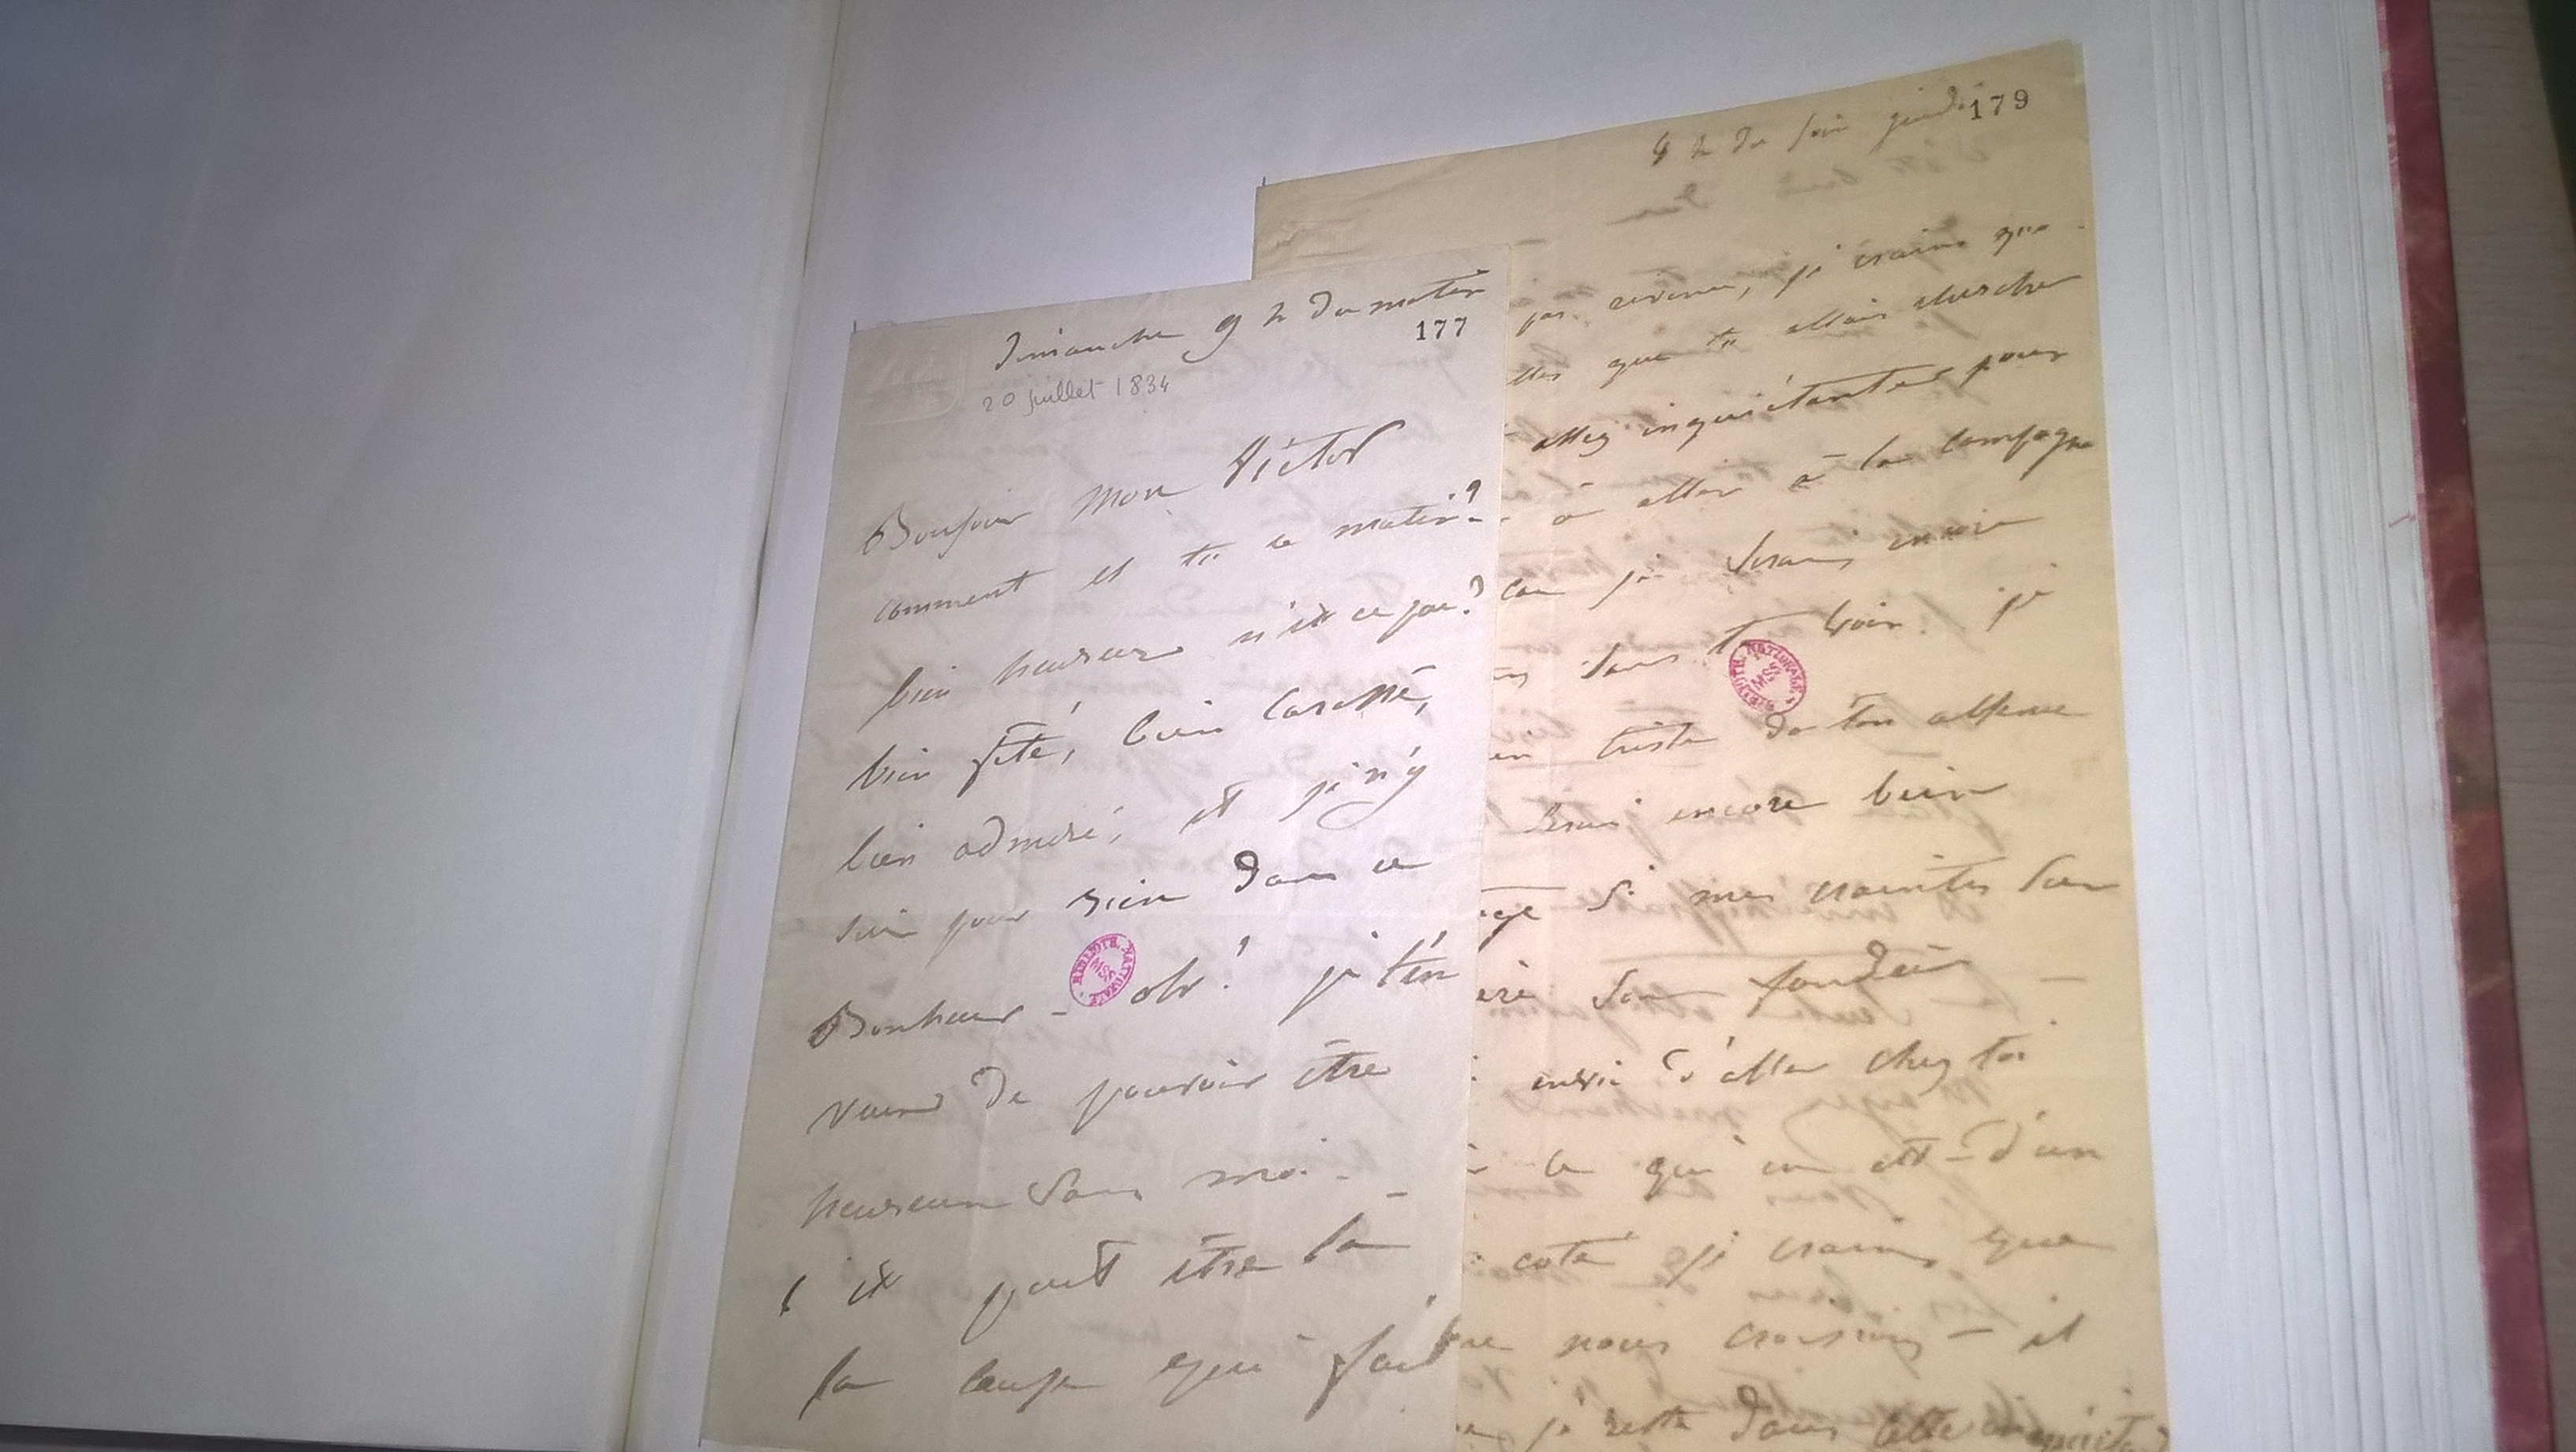 Dimanche 9 h du matin
177
20 juillet 1834
Bonjour mon Victor
comment es tu ce matin?
bien heureux n'est ce pas?
bien fêté, bien caressé,
bien admiré, et je n'y
suis pour rien dans ce
Bonheur - oh! je t'en
veux de pouvoir être
heureux sans moi -
est peut être là
la cause qui fait
BIBLIOTH. NATIONALE
MSS
179
h du soir jeudi
pas revenu, je crains que
que tu allais chercher
assez inquiétantes pour
à aller à la campagne
car je serais encore
sans te voir. je
triste de ton absence
serais encore bien
si mes craintes sur
sont fondées
envie d'aller chez toi
ce qui en est - d'un
coté je crains que
nous croisions - il
je reste dans cette
BIBLIOTH. NATIONALE
MSS